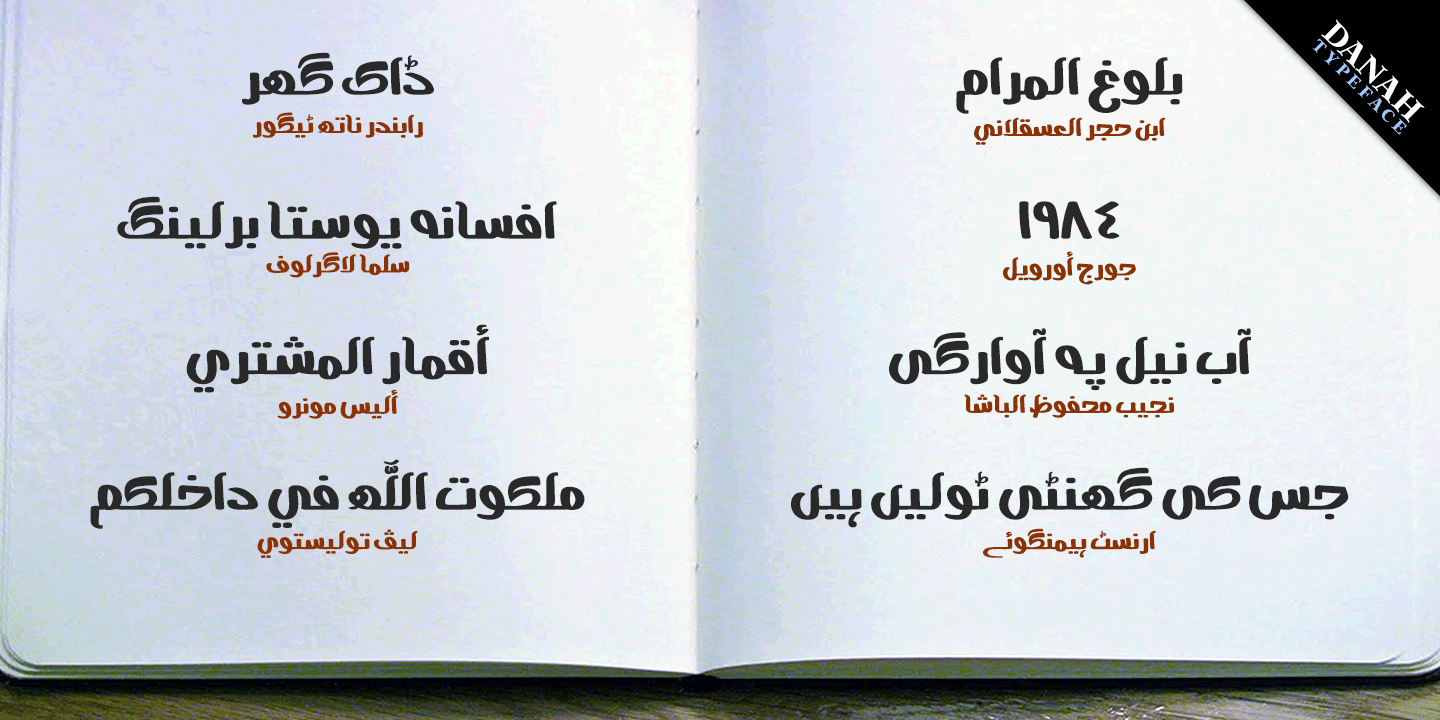 بلوغ المرام
ابن حجر العسقلاني
١٩٨٤
جورج أورويل
آب نیل په آوارگی
نجيب محفوظ الباشا
جس کی گھنٹی ٹولیں ہیں
ارنسٹ ہیمنگوئے
ڈاک گھر
رابندر ناتھ ٹیگور
افسانه یوستا برلینگ
سلما لاگرلوف
أقمار المشتري
أليس مونرو
ملكوت اللّٰه في داخلكم
ليڤ توليستوي
DANAH
TYPEFACE